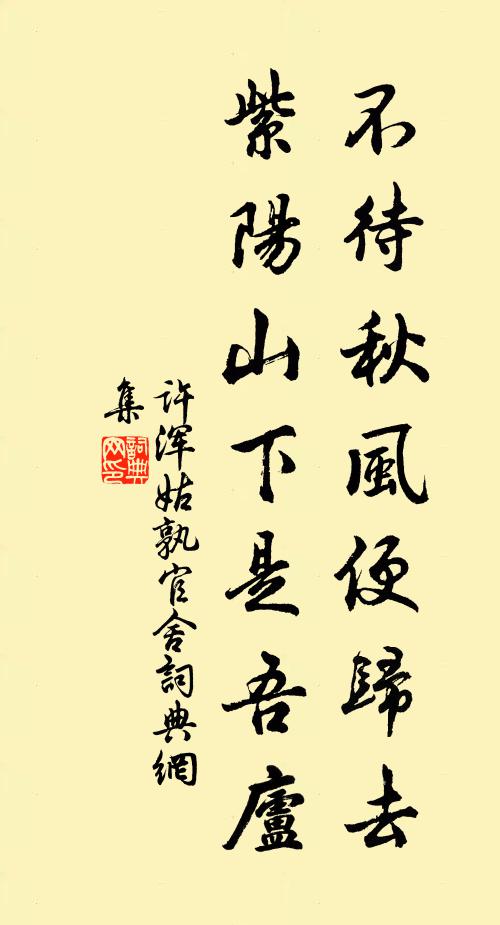 不待秋風便歸去
紫陽山下是吾廬
許渾姑孰官舍詞典網
集
詞典網印